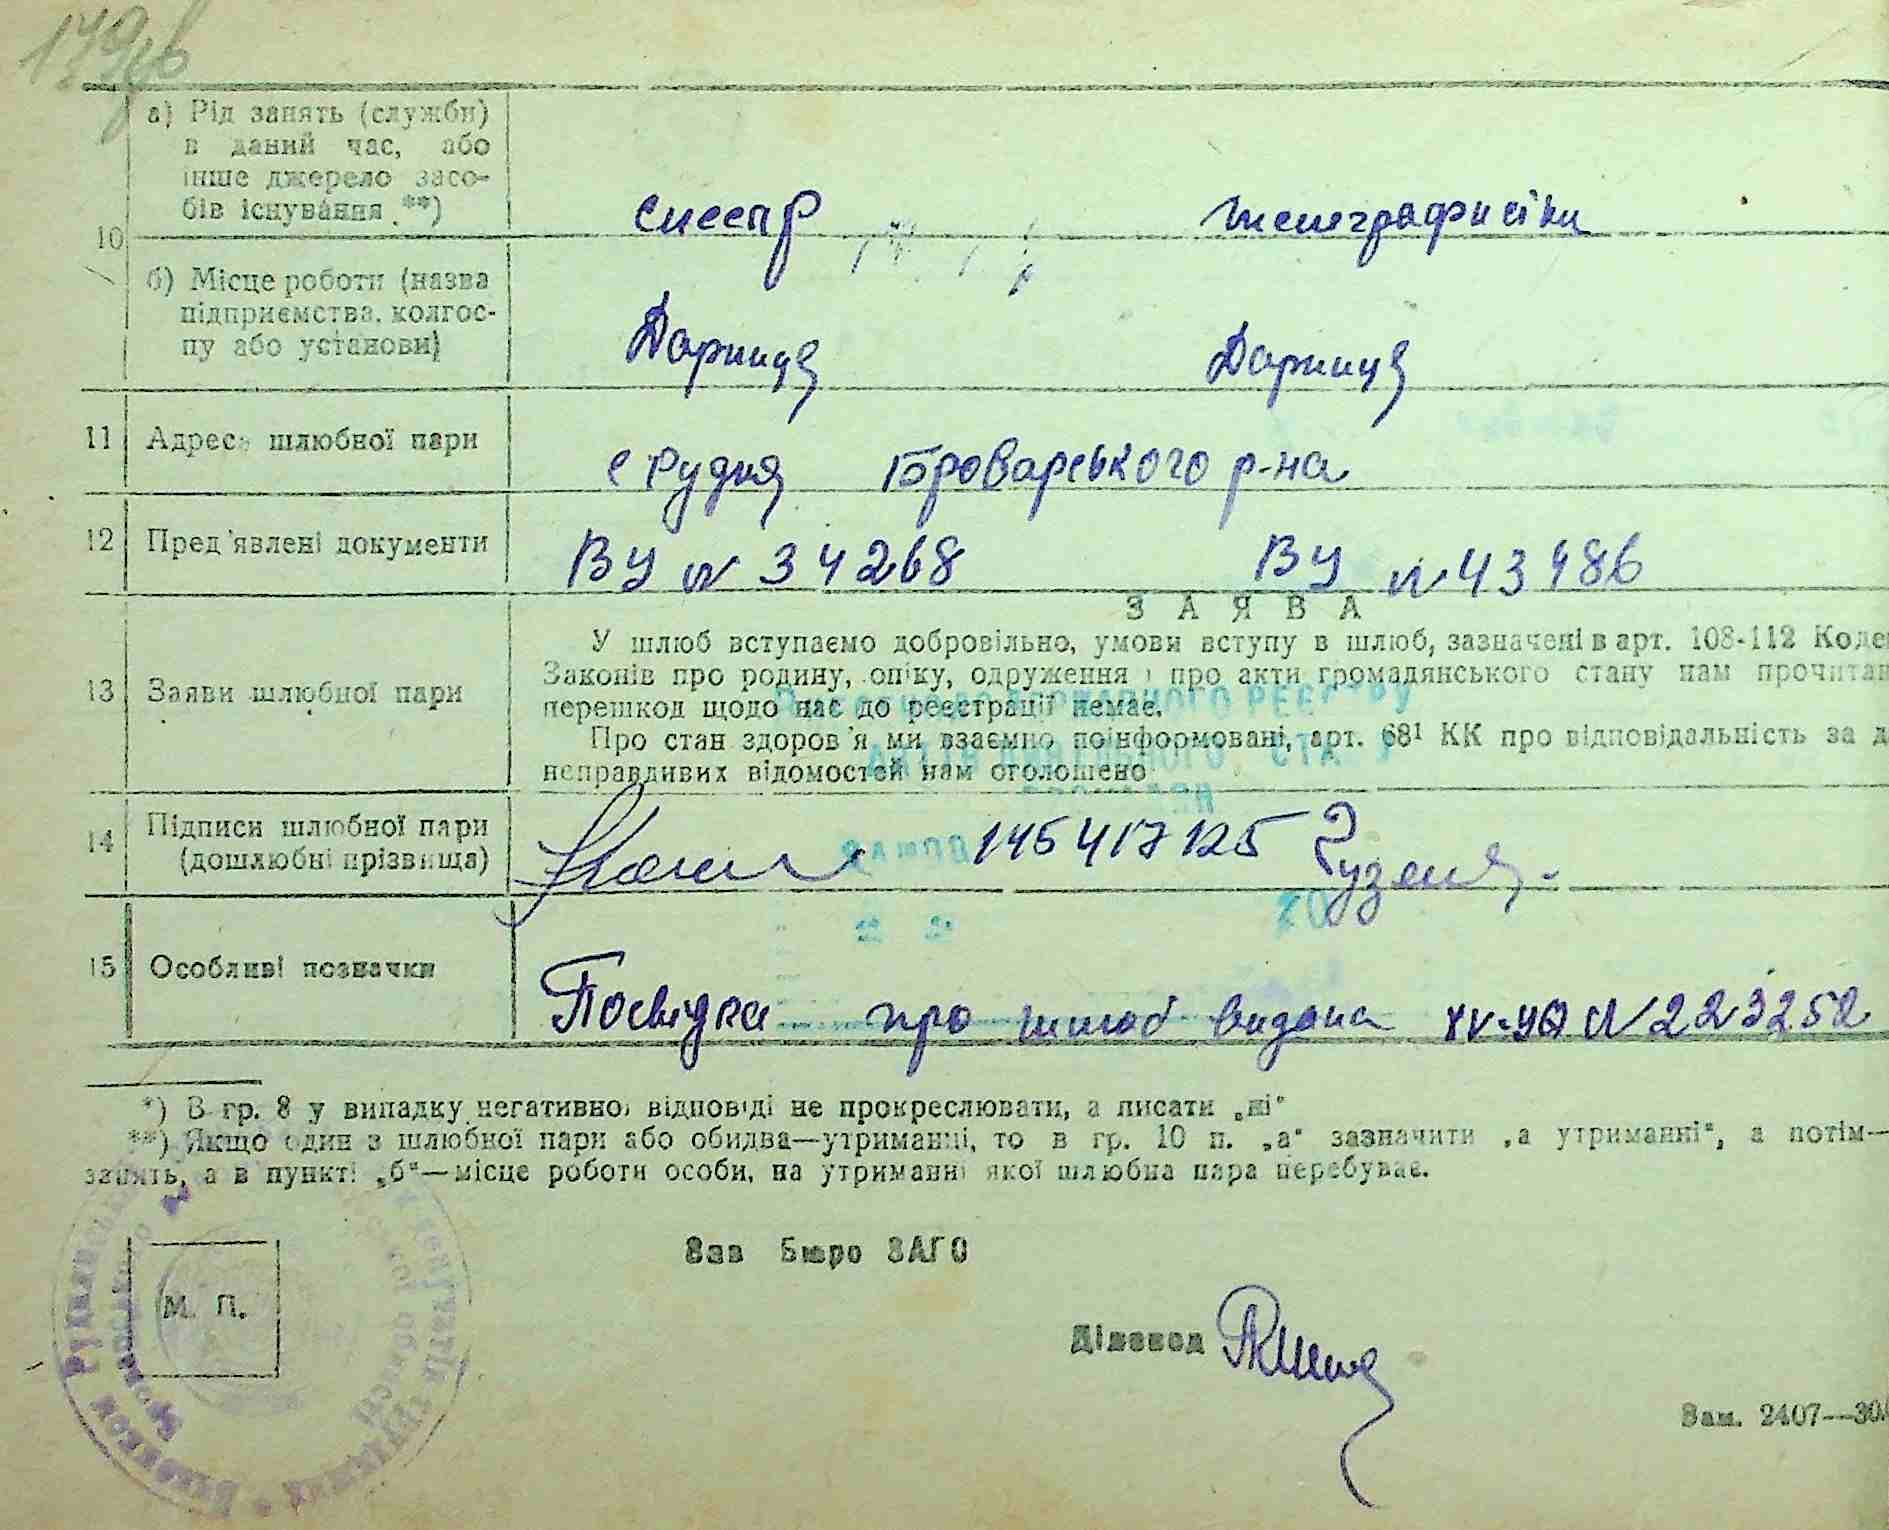 а) Рід занять (служби)
в даний час, або
інше джерело засо-
бів існування **)
10
телеграфистка
б) Місце роботи (назва
підприємства, колгос-
пу або установи)
Дарниця Дарниця
11 Адреса шлюбної пари
с Рудня Броварського р-на
12 Пред'явлені документи
ВУ № 34268 ВУ № 43486
ЗАЯВА
13 Заяви шлюбної пари
У шлюб вступаємо добровільно, умови вступу в шлюб, зазначені в арт. 108-112 Коде
Законів про родину, опіку, одруження і про акти громадянського стану нам прочитан
перешкод щодо нас до реєстрації немає.
Про стан здоров'я ми взаємно поінформовані, арт. 68¹ КК про відповідальність за д
неправдивих відомостей нам оголошено
14 Підписи шлюбної пари
(дошлюбні прізвища)
145417125
15 Особливі позначки
Посвідка про шлюб видана № 223252
*) В гр. 8 у випадку негативної відповіді не прокреслювати, а писати „ні“
**) Якщо один з шлюбної пари або обидва—утриманці, то в гр. 10 п. „а“ зазначити „а утриманні“, а потім—
занять, а в пункті „б“—місце роботи особи, на утриманні якої шлюбна пара перебуває.
Зав Бюро ЗАГС
М. П.
Діловод
Зам. 2407—30